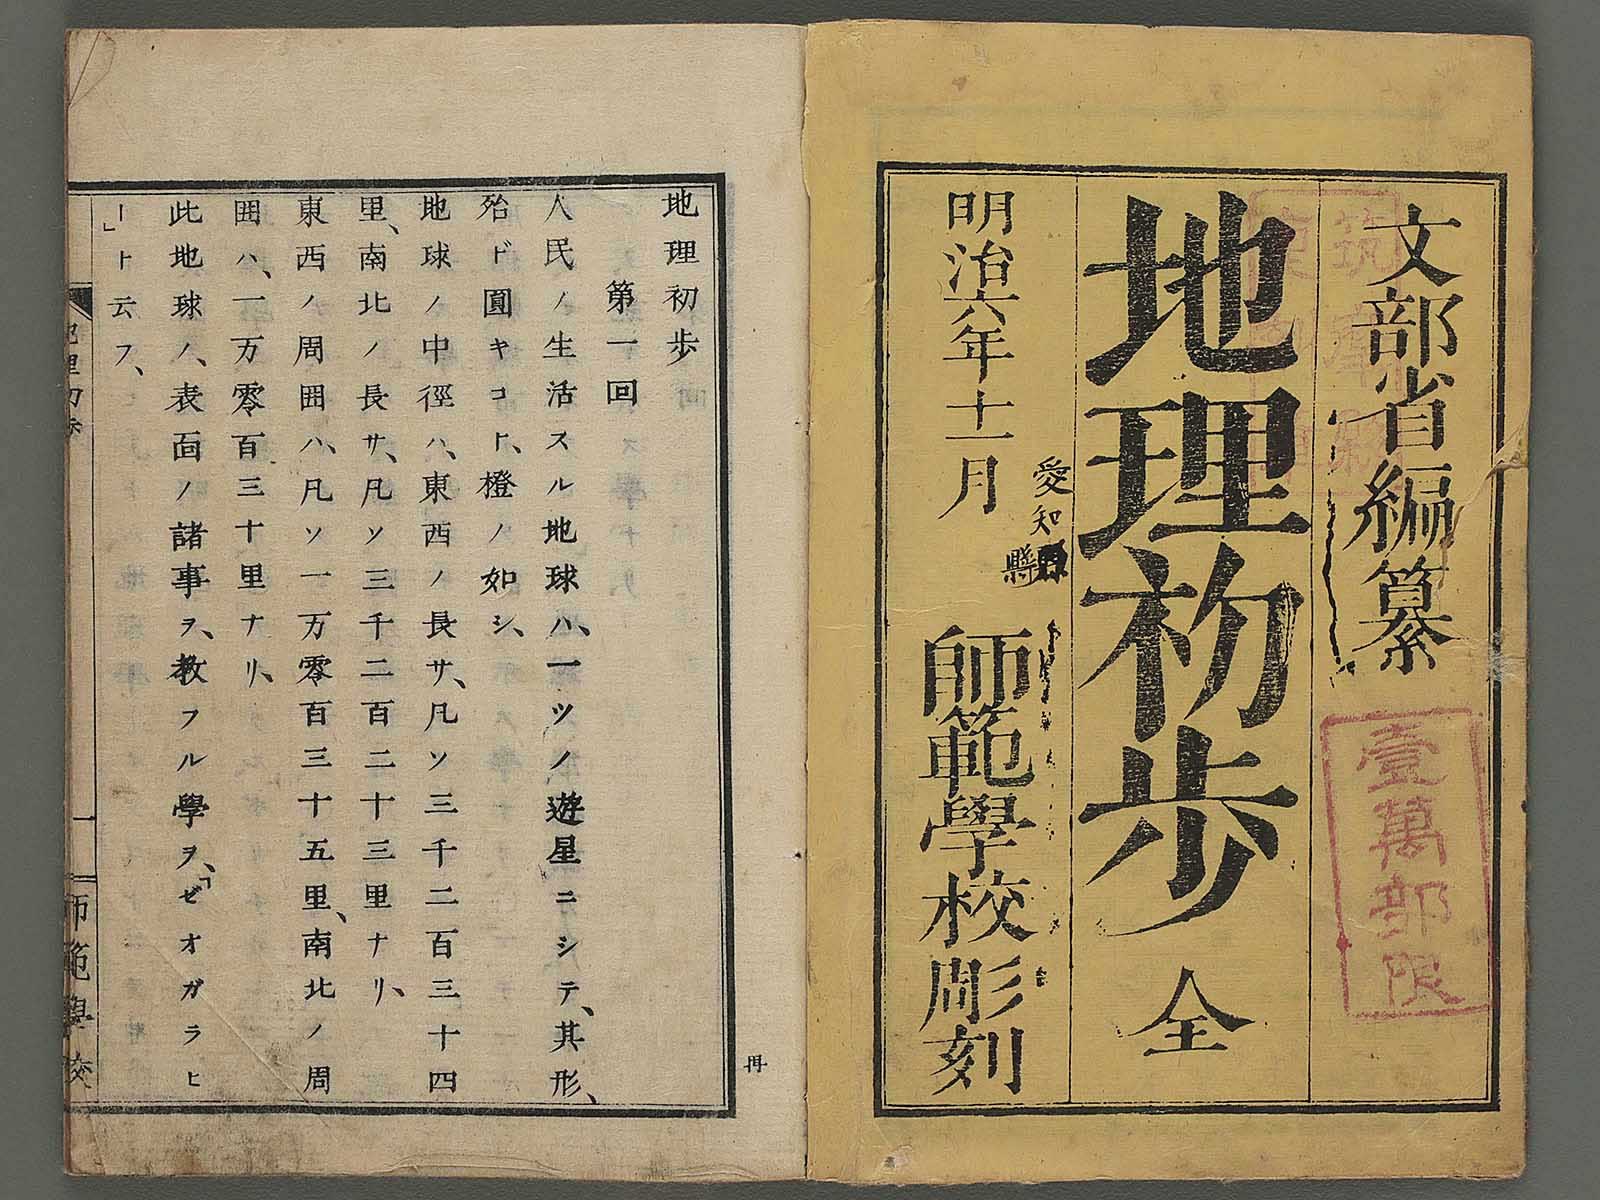 文部省編纂
壹萬部限
地理初歩 全
明治六年十一月
愛知
縣
師範學校彫刻
地理初歩
第一回
人民ノ生活スル地球ハ、一ツノ遊星ニシテ、其形、
殆ド圓キコト、橙ノ如シ、
地球ノ中徑ハ、東西ノ長サ、凡ソ三千二百三十四
里、南北ノ長サ、凡ソ三千二百二十三里ナリ、
東西ノ周囲ハ、凡ソ一万零百三十五里、南北ノ周
囲ハ、一万零百三十里ナリ、
此地球ノ、表面ノ諸事ヲ、教フル學ヲ、「ゼオガラヒ
ー」ト云フ、
地理初歩
一
師範學校